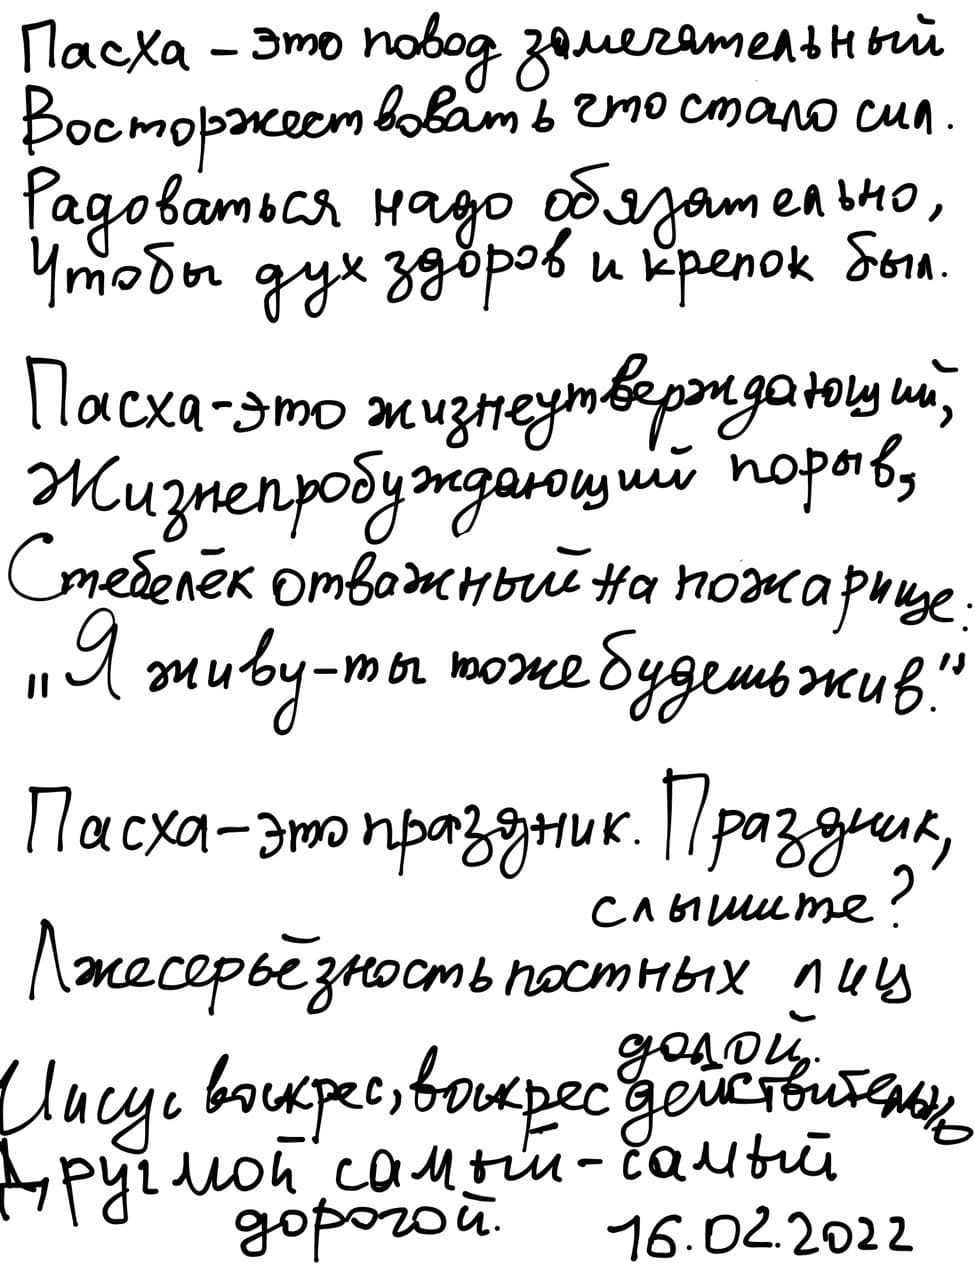 Пасха - это повод замечательный
Восторжествовать что стало сил.
Радоваться надо обязательно,
Чтобы дух здоров и крепок был.
Пасха-это жизнеутверждающий,
Жизнепробуждающий порыв,
Стебелёк отважный на пожарище:
"Я живу-ты тоже будешь жив."
Пасха-это праздник. Праздник,
слышите?
Лжесерьёзность постных лиц
долой.
Иисус воскрес, воскрес действительно
Друг мой самый-самый
дорогой.
16.02.2022